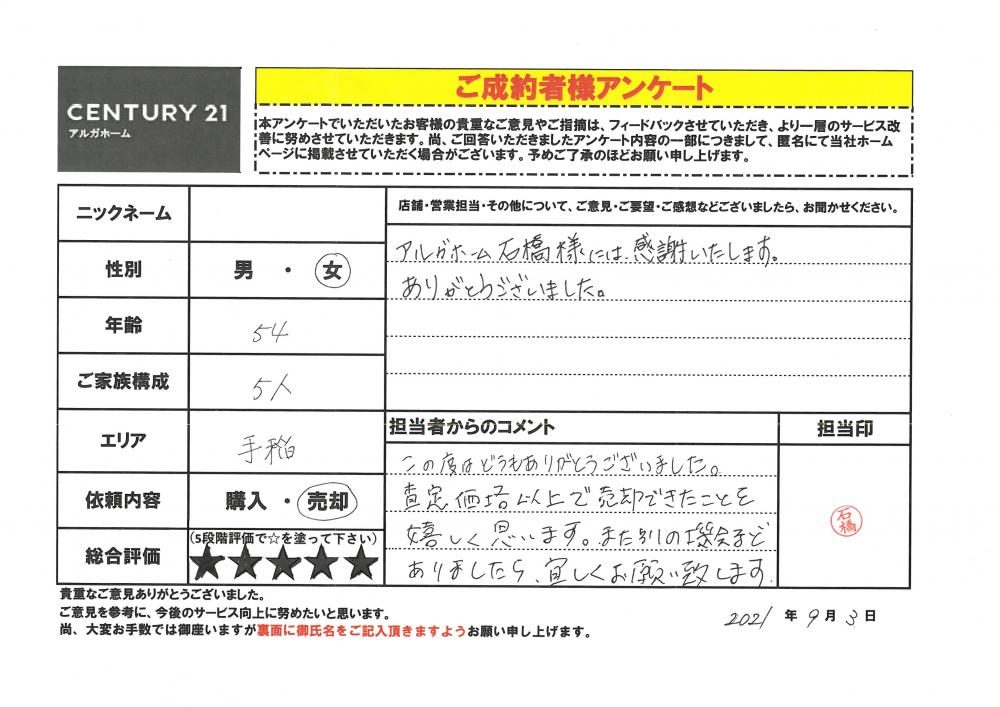 CENTURY 21
アルガホーム
ご成約者様アンケート
本アンケートでいただいたお客様の貴重なご意見やご指摘は、フィードバックさせていただき、より一層のサービス改
善に努めさせていただきます。尚、ご回答いただきましたアンケート内容の一部につきまして、匿名にて当社ホーム
ページに掲載させていただく場合がございます。予めご了承のほどお願い申し上げます。
ニックネーム
性別 男 ・ 女
年齢 54
ご家族構成 5人
エリア 手稲
依頼内容 購入 ・ 売却
総合評価 (5段階評価で☆を塗って下さい)
★★★★★
店舗・営業担当・その他について、ご意見・ご要望・ご感想などございましたら、お聞かせください。
アルガホーム石橋様には感謝いたします。
ありがとうございました。
担当者からのコメント
この度はどうもありがとうございました。
査定価格以上で売却できたことを
嬉しく思います。また別の機会など
ありましたら、宜しくお願い致します
担当印
石橋
貴重なご意見ありがとうございました。
ご意見を参考に、今後のサービス向上に努めたいと思います。
尚、大変お手数では御座いますが裏面に御氏名をご記入頂きますようお願い申し上げます。
2021 年 9 月 3 日